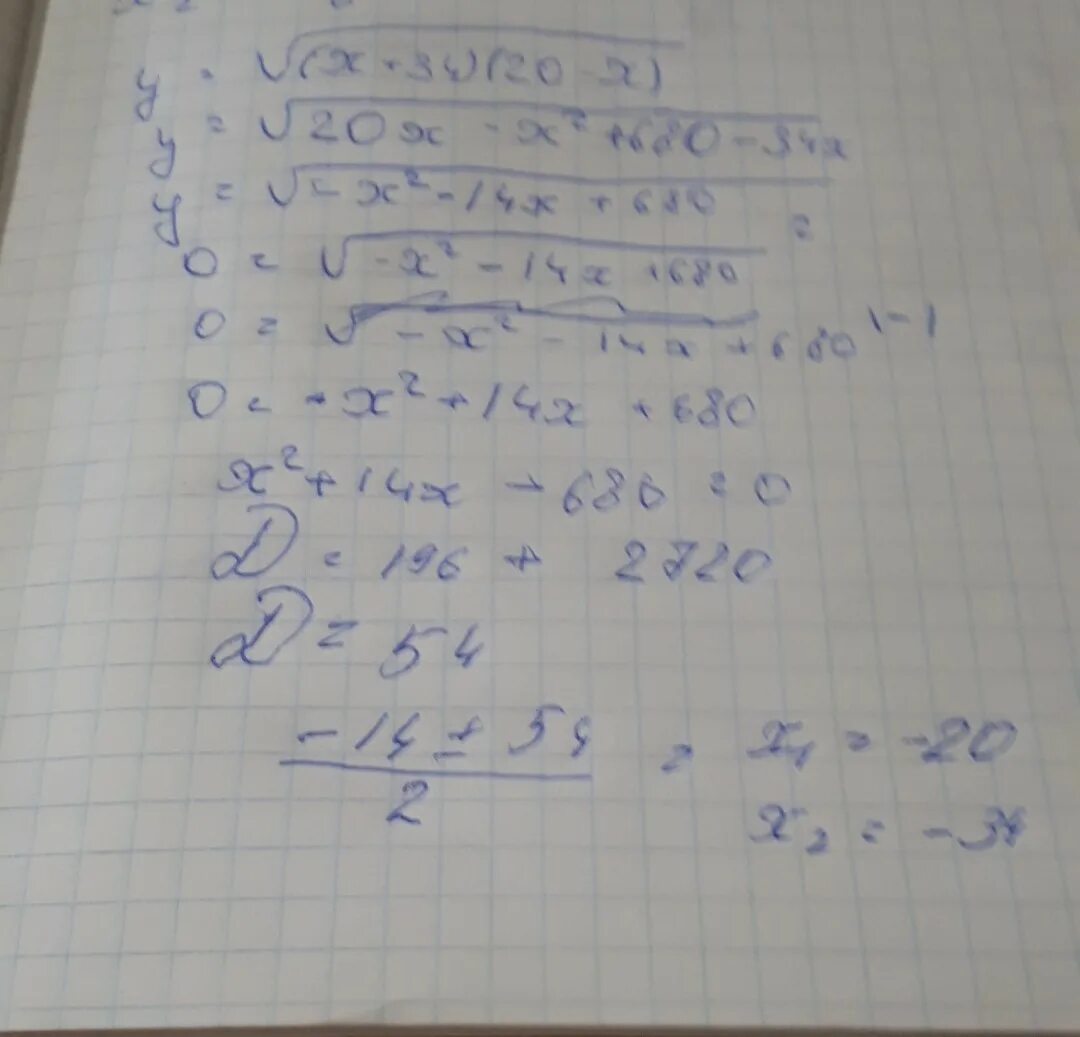 y = √(x + 34)(20 - x)
y = √20x - x² + 680 - 34x
y = √-x² - 14x + 680 =
0 = √-x² - 14x + 680
0 = √-x² - 14x + 680 |-1
0 = -x² + 14x + 680
x² + 14x - 680 = 0
D = 196 + 2720
D = 54
-14 ± 54 / 2 = x₁ = -20
x₂ = -34